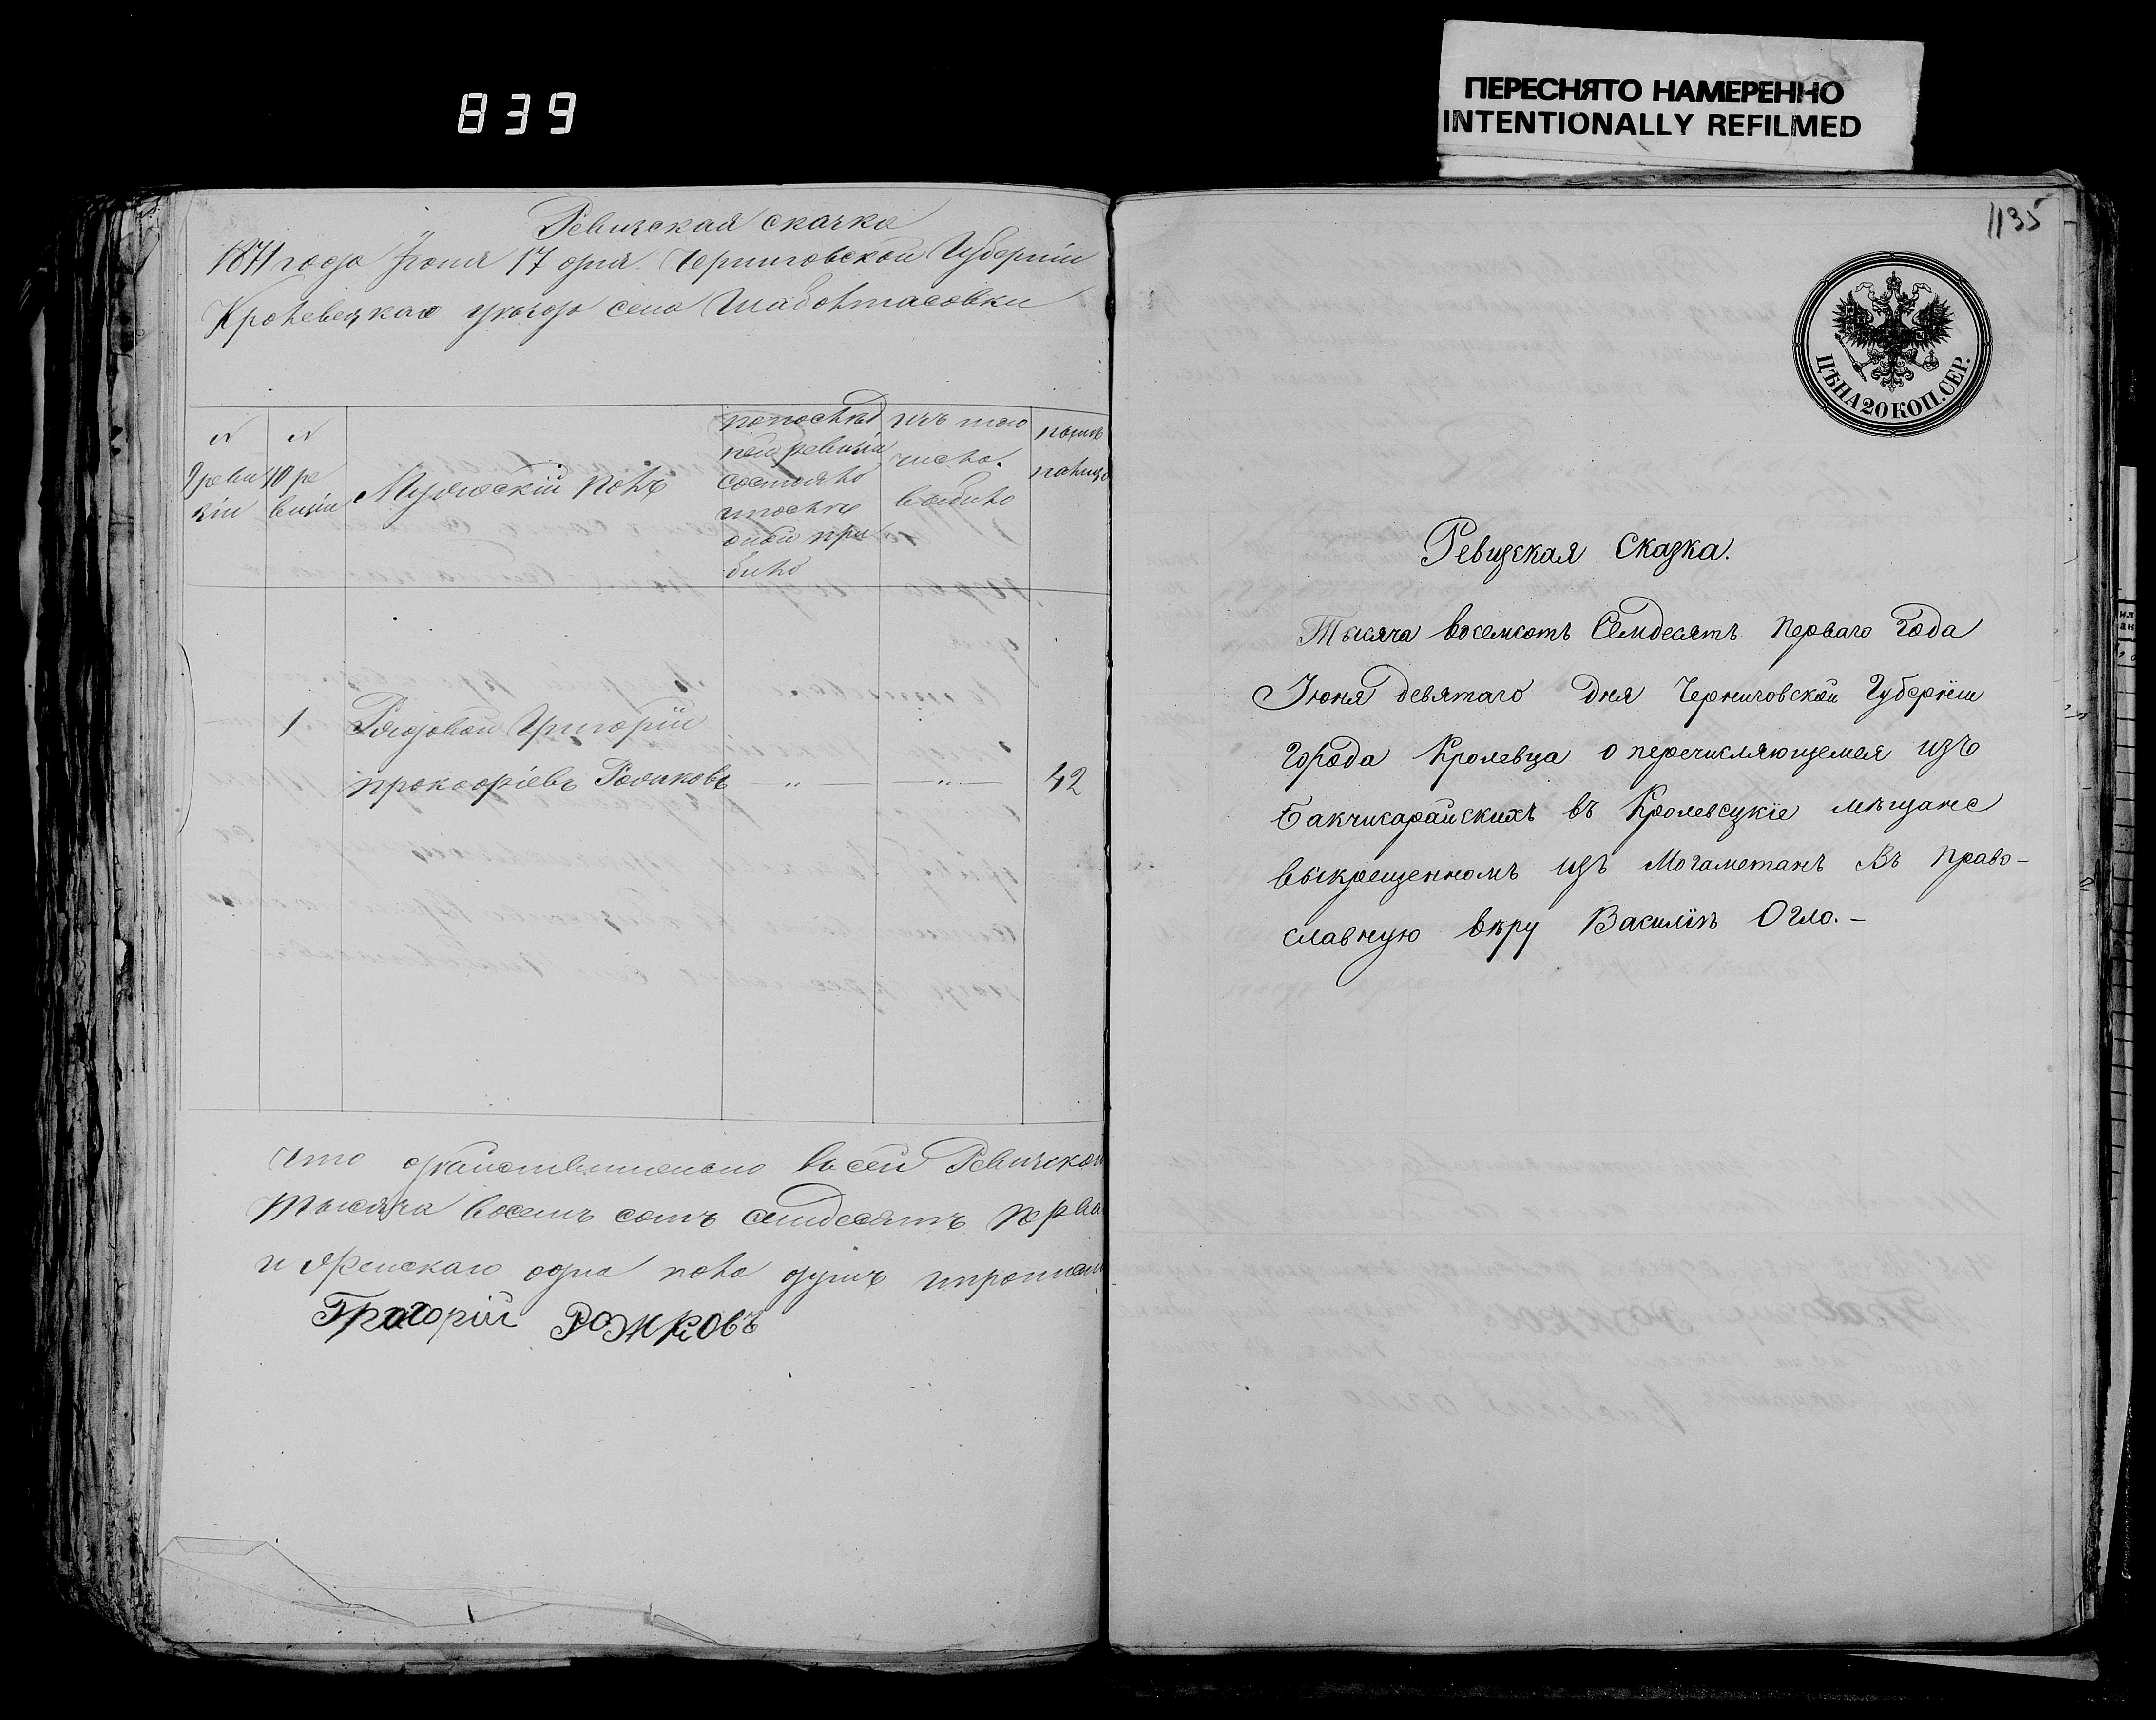 839
ПЕРЕСНЯТО НАМЕРЕННО
INTENTIONALLY REFILMED
Ревизская сказка
1871 года Іюня 17 дня Черниговской Губерніи
Кролевецкаго уѣзда села Шаболтасовки
№ 9 реви зіи
№ 10 ре визіи
Мужескій полъ
состояло
прибыло
изъ того
числа
выбыло
1 Рядовой Григорій
Прокофіевъ Рожковъ — „ — — „ — 42
что дѣйствительно въ сей Ревизской
тысяча восемь сотъ семдесятъ перва
и женскаго одна
Григорій Рожковъ
1135
ЦѢНА 20 КОП. СЕР.
Ревизская Сказка.
Тысяча восемсотъ Семдесятъ перваго Года
Іюня девятаго дня Черниговской Губерніи
города Кролевца о перечисляющемся изъ
Бакчисарайскихъ въ Кролевецкіе мѣщане
выкрещенномъ изъ Могаметанъ въ право-
славную вѣру Василіѣ Огло.-